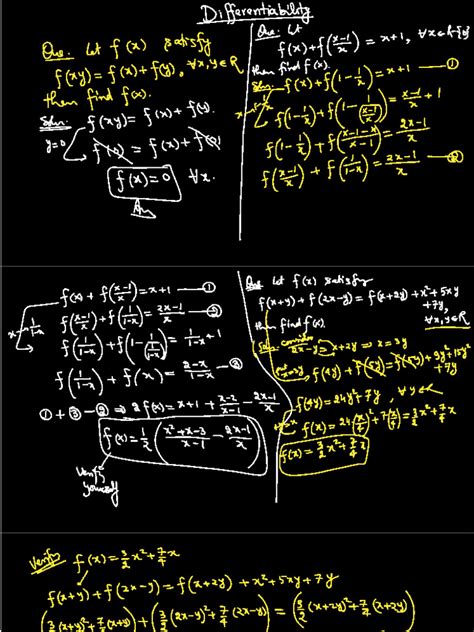 Differentiability
Que. Let f(x) satisfy
f(xy) = f(x) + f(y), ∀x,y∈R
then find f(x).
Soln: f(xy) = f(x) + f(y).
y=0
f(0) = f(x) + f(0)
f(x) = 0 ∀x.
Ans
Que. Let
f(x) + f((x-1)/x) = x+1, ∀x∈R-{0}
then find f(x).
Soln: f(x) + f(1-1/x) = x+1 —①
x→1-1/x
f(1-1/x) + f(1-1/((x-1)/x)) = (x-1)/x + 1
f(1-1/x) + f((x-1-x)/(x-1)) = (2x-1)/x
f((x-1)/x) + f(1/(1-x)) = (2x-1)/x —②
f(x) + f((x-1)/x) = x+1 —①
f((x-1)/x) + f(1/(1-x)) = (2x-1)/x —②
x→1/(1-x)
f(1/(1-x)) + f(1-1/(1/(1-x))) = 1/(1-x) + 1
f(1/(1-x)) + f(x) = (2-x)/(1-x) —③
①+③-② ⇒ 2f(x) = x+1 + (x-2)/(x-1) - (2x-1)/x
f(x) = 1/2 ((x²+x-3)/(x-1) - (2x-1)/x)
Verify yourself
Que. Let f(x) satisfy
f(x+y) + f(2x-y) = f(x+2y) + x²+5xy
+7y,
∀x,y∈R
then find f(x).
Soln: consider
2x-y = x+2y ⇒ x=3y
put x=3y
f(4y) + f(5y) = f(5y) + 9y²+15y²
+7y
f(4y) = 24y²+7y, ∀y∈R
f(x) = 24(x/4)² + 7(x/4) = 3/2 x² + 7/4 x
f(x) = 3/2 x² + 7/4 x
Verify f(x) = 3/2 x² + 7/4 x
f(x+y) + f(2x-y) = f(x+2y) + x²+5xy+7y
(3/2 (x+y)² + 7/4 (x+y)) + (3/2 (2x-y)² + 7/4 (2x-y)) = (3/2 (x+2y)² + 7/4 (x+2y)